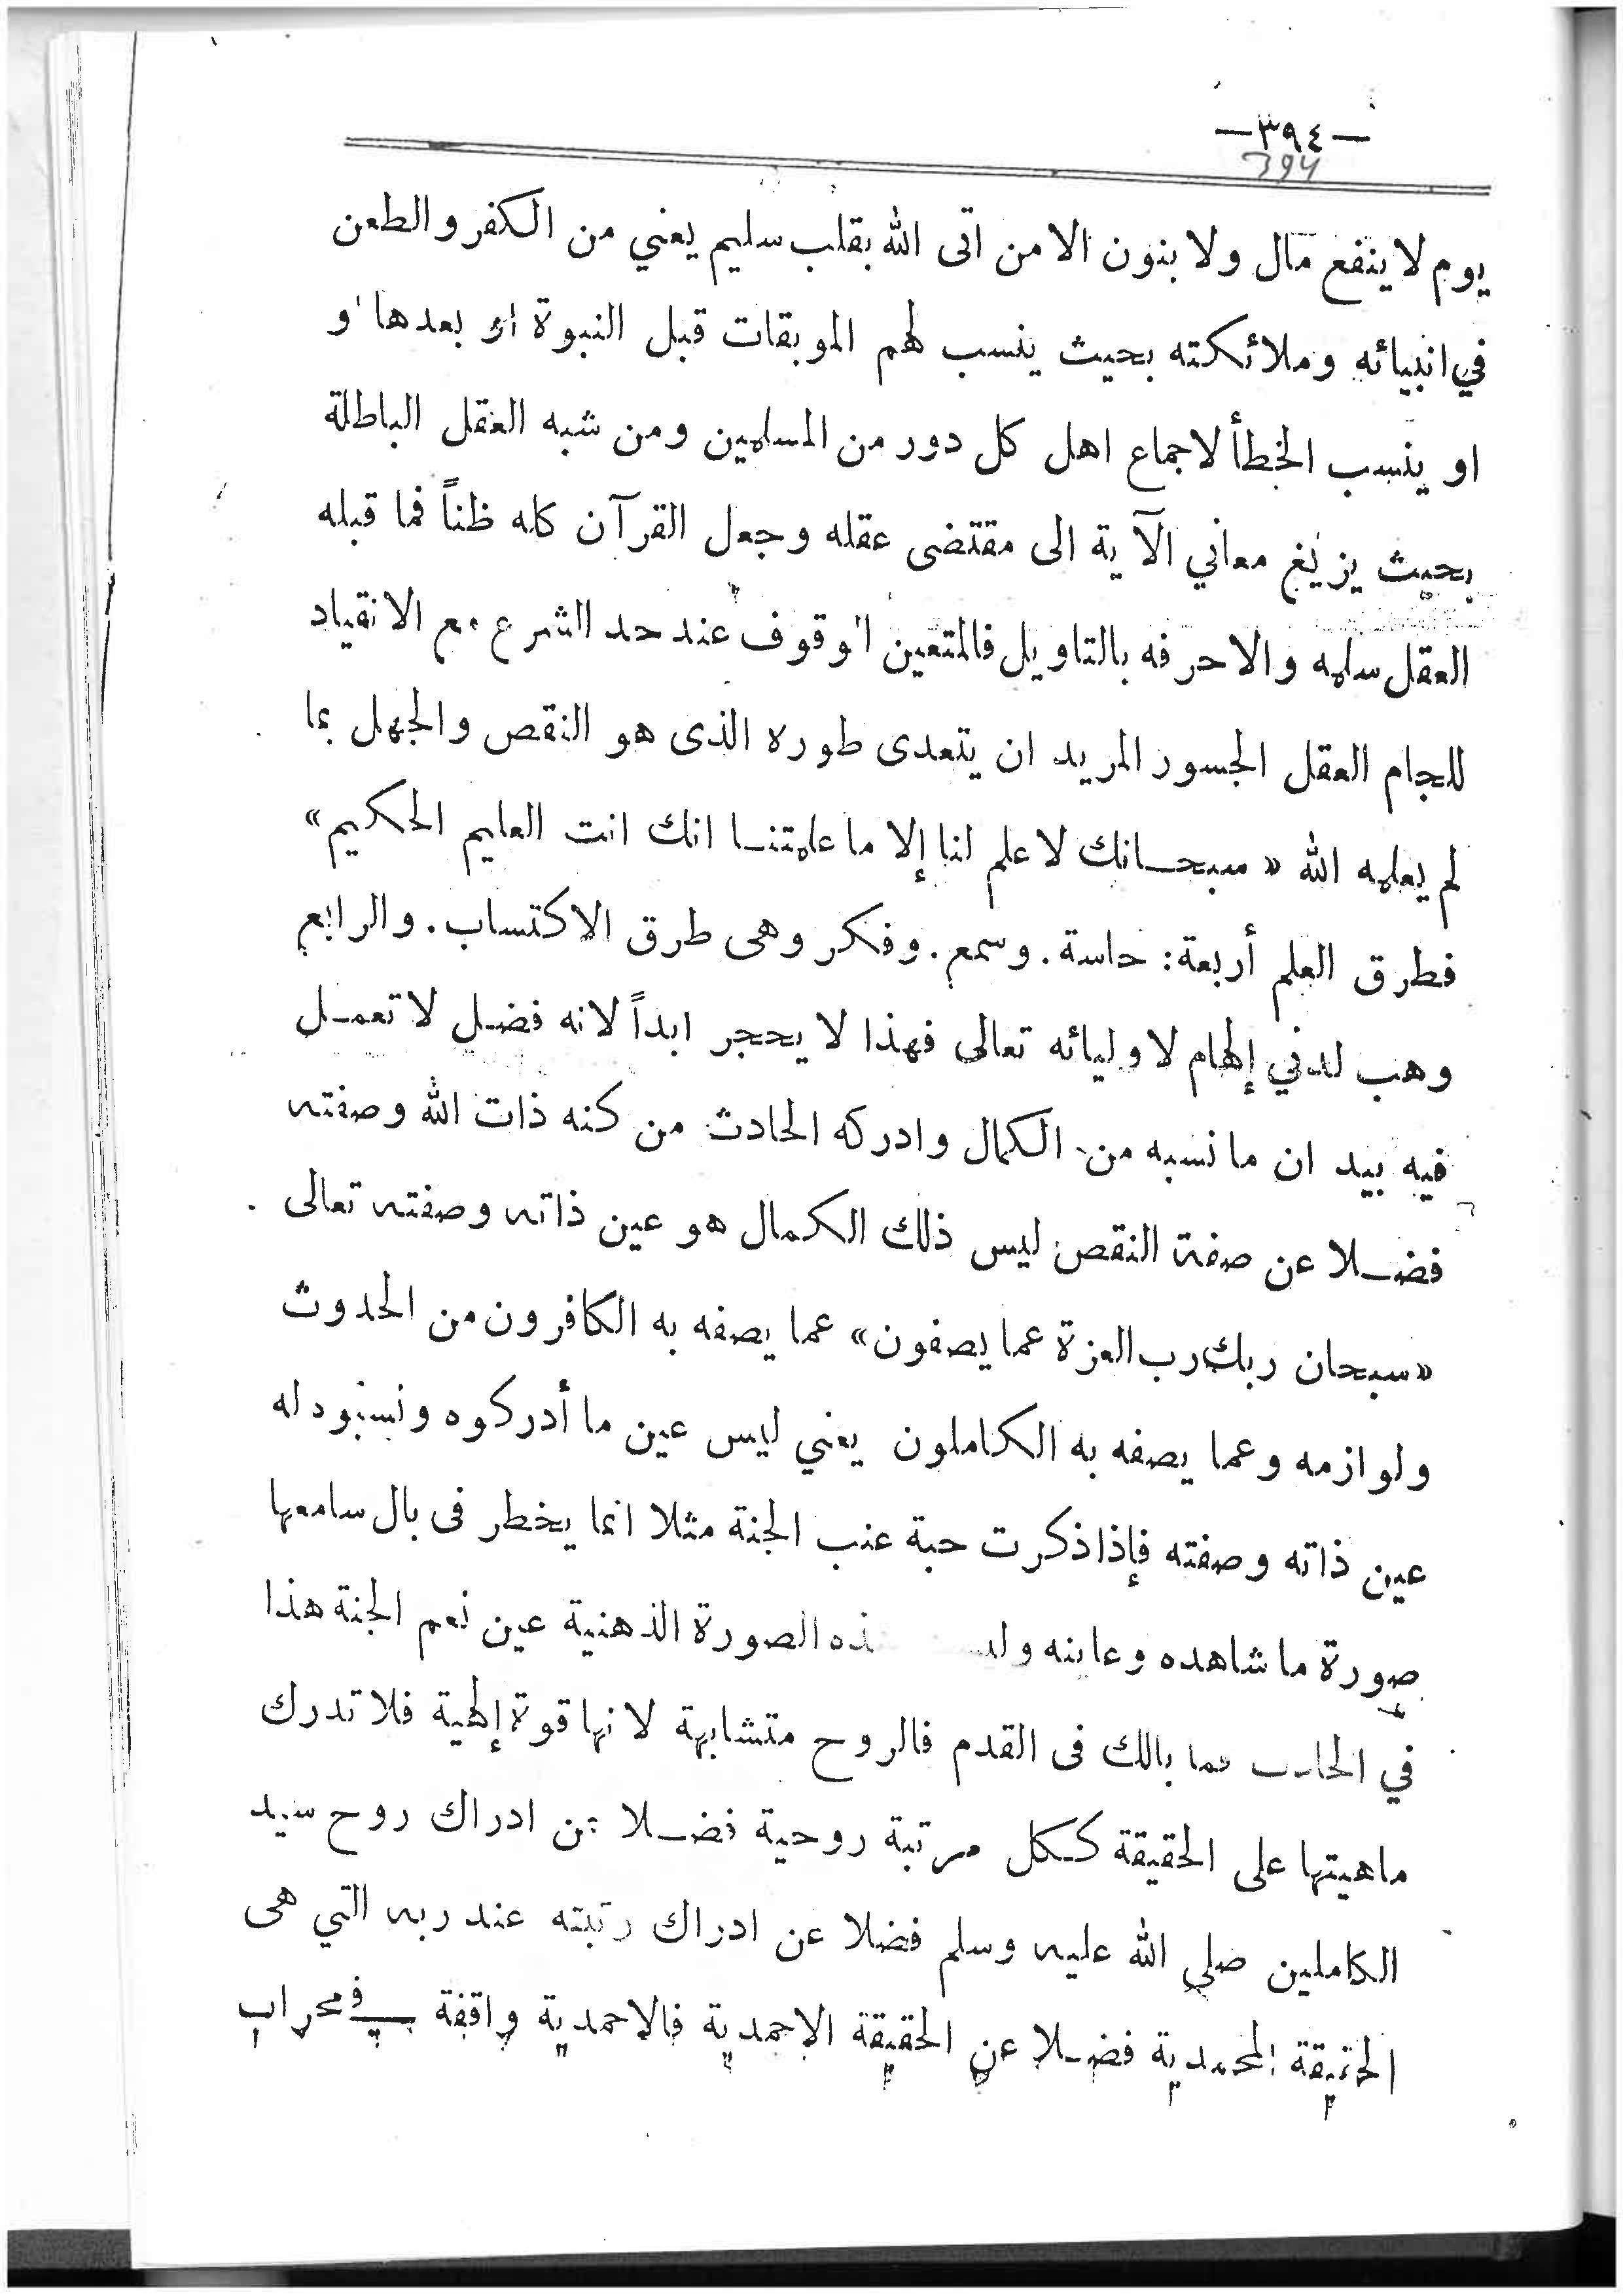 —٣٩٤—
394
يوم لا ينفع مال ولا بنون الا من اتى الله بقلب سليم يعني من الكفر والطعن
في انبيائه وملائكته بحيث ينسب لهم الموبقات قبل النبوة او بعدها او
او ينسب الخطأ لاجماع اهل كل دور من المسلمين ومن شبه العقل الباطلة
بحيث يزيغ معاني الآية الى مقتضى عقله وجعل القرآن كله ظناً فما قبله
العقل سلمه والا حرفه بالتاويل فالمتعين الوقوف عند حد الشرع مع الانقياد
للجام العقل الجسور المريد ان يتعدى طوره الذى هو النقص والجهل بما
لم يعلمه الله « سبحانك لا علم لنا إلا ما علمتنا انك انت العليم الحكيم»
فطرق العلم أربعة: حاسة. وسمع. وفكر وهى طرق الاكتساب. والرابع
وهب لدني إلهام لاوليائه تعالى فهذا لا يحجر ابداً لانه فضل لا تعمل
فيه بيد ان ما نسبه من الكمال وادركه الحادث من كنه ذات الله وصفته
فضلا عن صفة النقص ليس ذلك الكمال هو عين ذاته وصفته تعالى .
«سبحان ربك رب العزة عما يصفون» عما يصفه به الكافرون من الحدوث
ولوازمه وعما يصفه به الكاملون يعني ليس عين ما أدركوه ونسبوه له
عين ذاته وصفته فإذا ذكرت حبة عنب الجنة مثلا انما يخطر فى بال سامعها
صورة ما شاهده وعاينه الصورة الذهنية عين نعم الجنة هذا
في بالك فى القدم فالروح متشابهة لانها قوة إلهية فلا تدرك
ماهيتها على الحقيقة ككل مرتبة روحية فضلا عن ادراك روح سيد
الكاملين صلى الله عليه وسلم فضلا عن ادراك رتبته عند ربه التي هى
الحقيقة المحمدية فضلا عن الحقيقة الاحمدية فالاحمدية واقفة في محراب